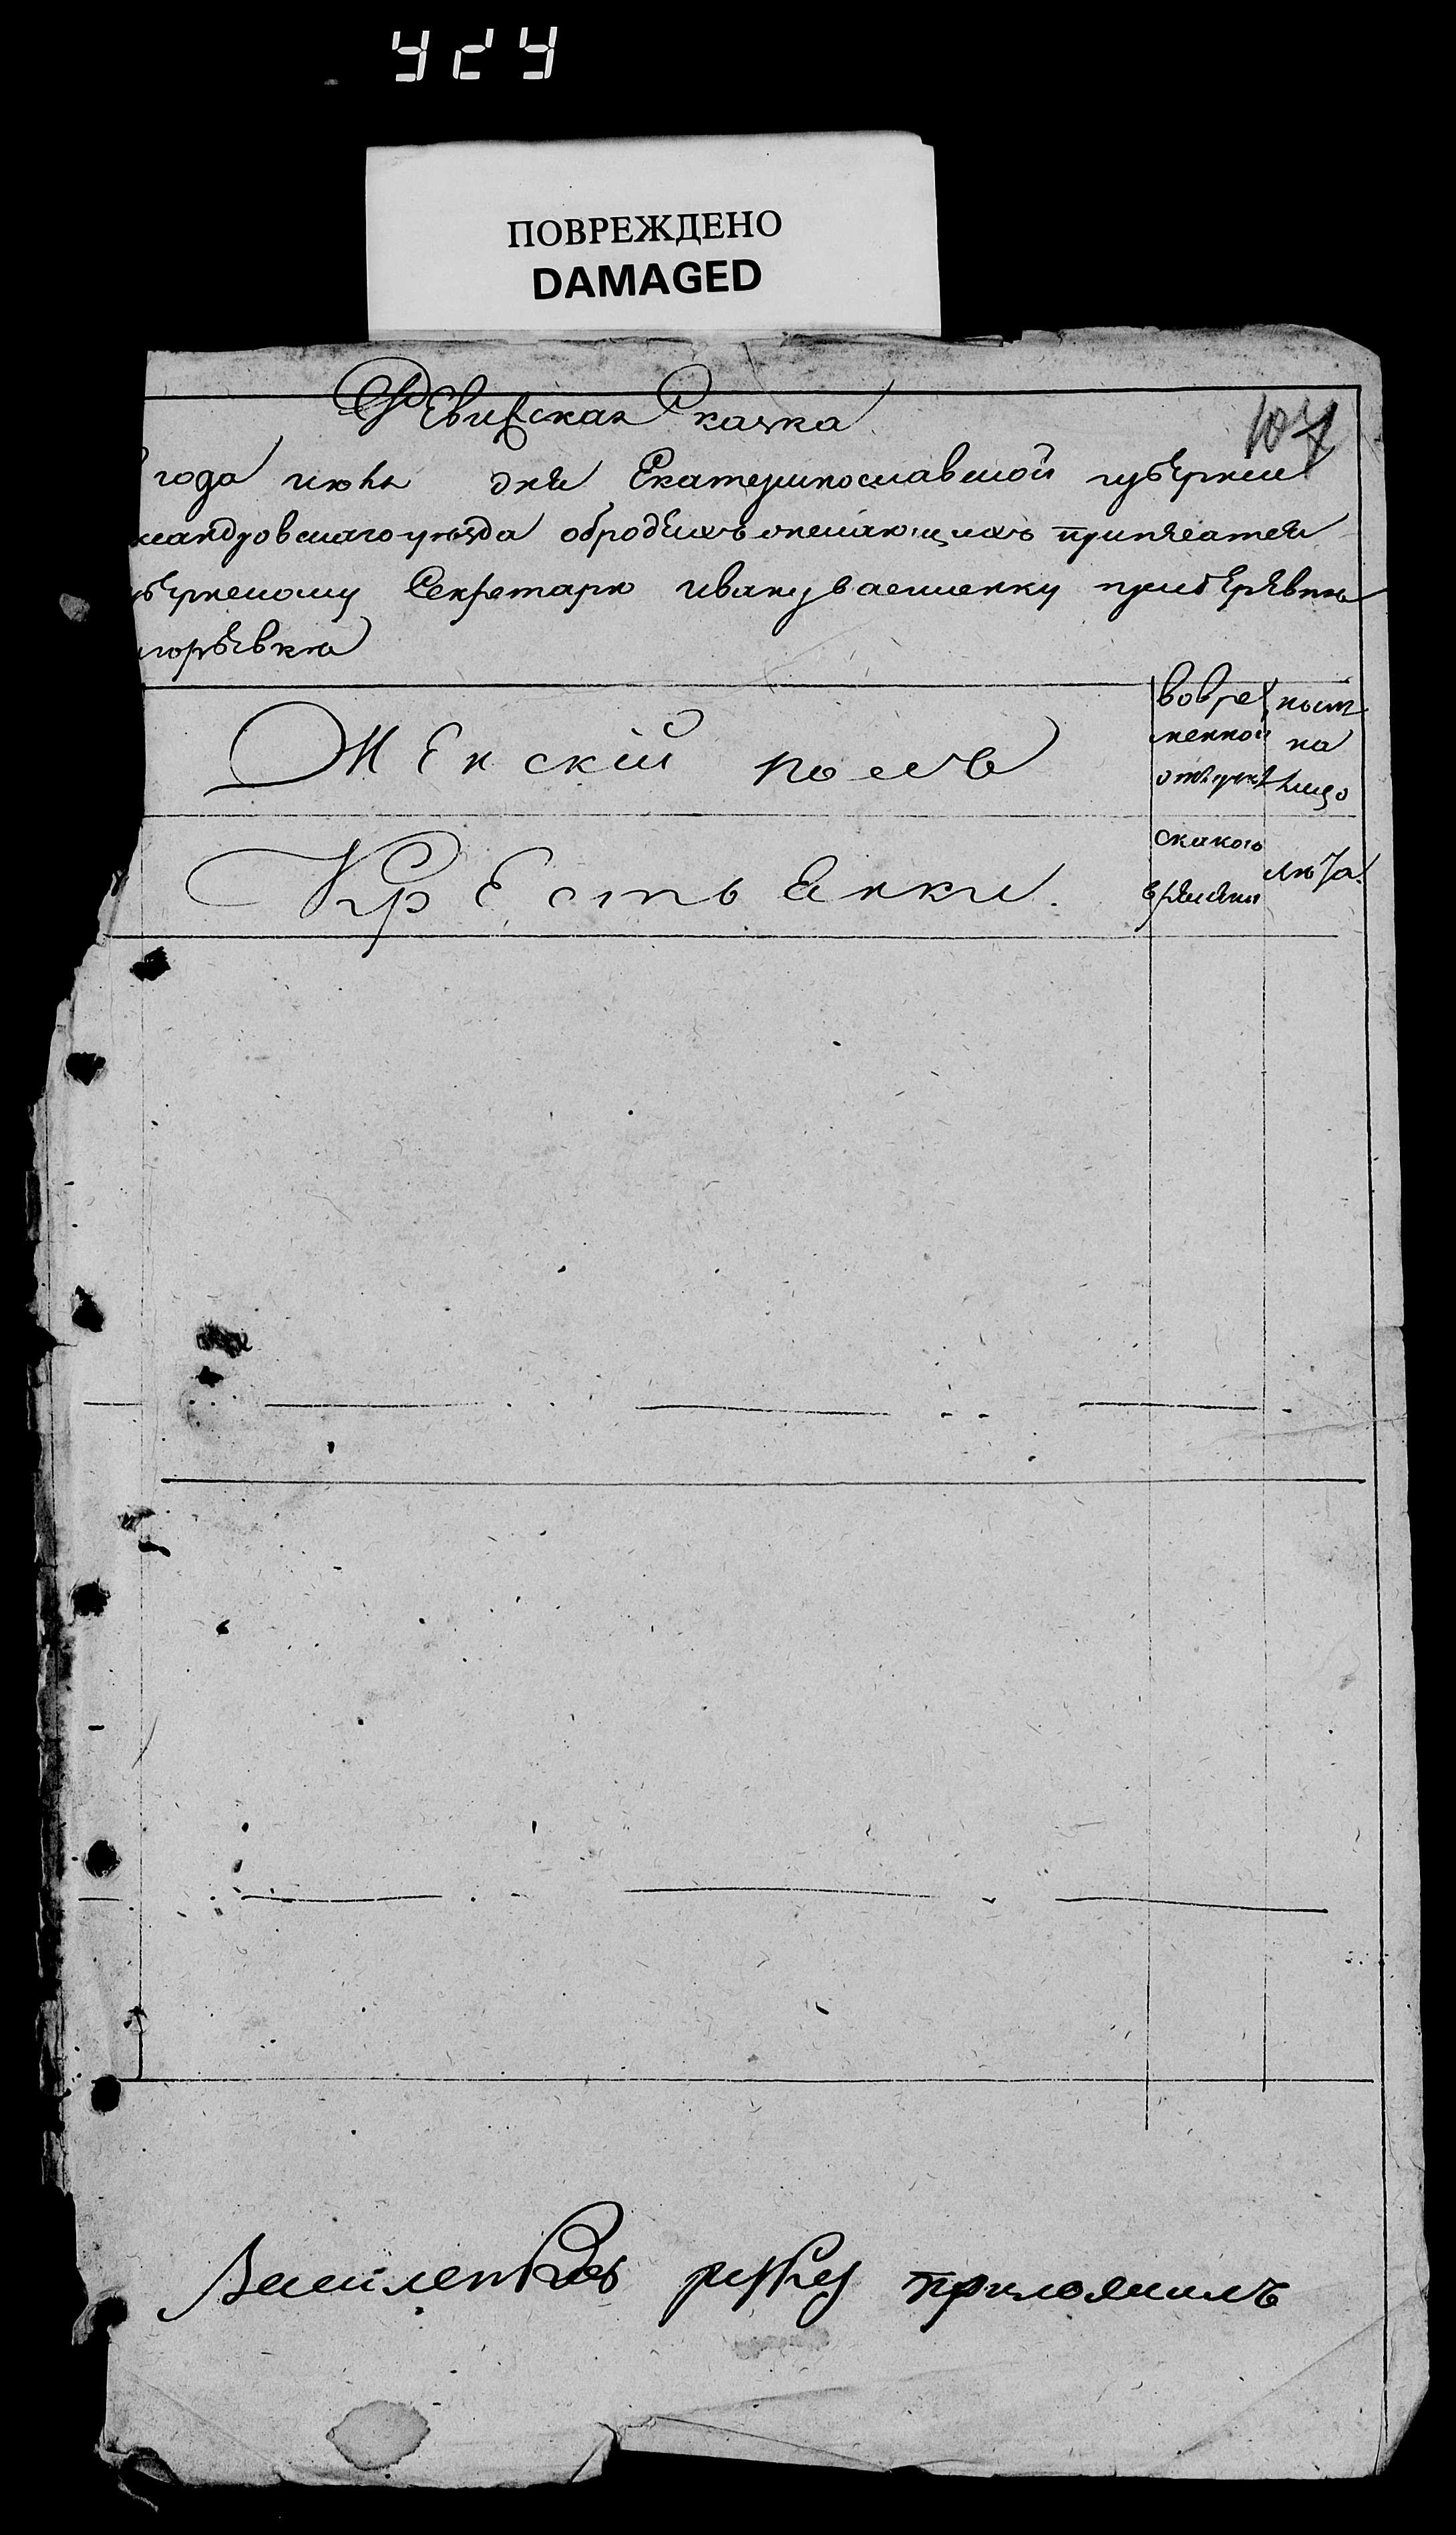 424
ПОВРЕЖДЕНО
DAMAGED
Ревизская Сказка
107
года июня дня Екатеринославской губернии
сандровскаго уезда обродихъ опенающихъ принелатей
бернскому Секретарю Ивану Василенку придеревне
горъевки
Женскій полъ
вовре
менной
отлучке
ныне
на
лицо
Крестьянки.
скакого
времени
лета.
Василенковъ руку приложилъ